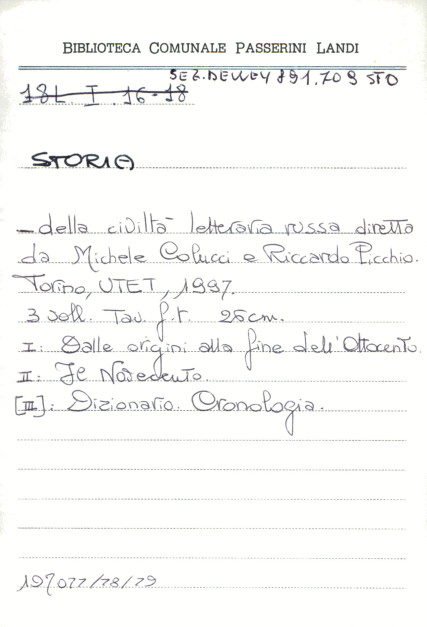 BIBLIOTECA COMUNALE PASSERINI LANDI
SEZ.DEWEY 891.709 STO
18L. I. 16-18
STORIA
- della civiltà letteraria russa diretta
da Michele Colucci e Riccardo Picchio.
Torino, UTET, 1997.
3 voll. Tav. f.t. 25cm.
I: Dalle origini alla fine dell'Ottocento.
II: Il Novecento.
[III]: Dizionario. Cronologia.
197077/78/79